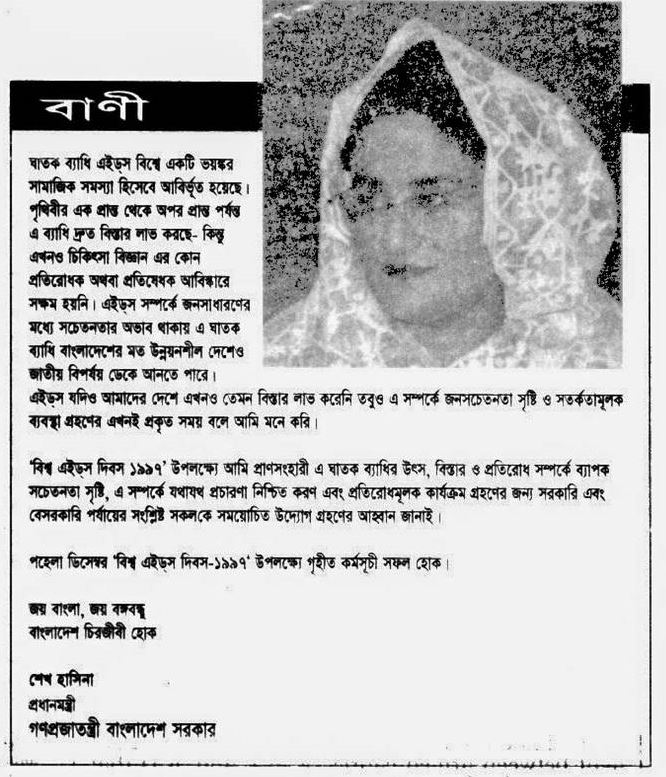 বাণী
ঘাতক ব্যাধি এইড্‌স বিশ্বে একটি ভয়ঙ্কর
সামাজিক সমস্যা হিসেবে আবির্ভূত হয়েছে।
পৃথিবীর এক প্রান্ত থেকে অপর প্রান্ত পর্যন্ত
এ ব্যাধি দ্রুত বিস্তার লাভ করছে- কিন্তু
এখনও চিকিৎসা বিজ্ঞান এর কোন
প্রতিরোধক অথবা প্রতিষেধক আবিষ্কারে
সক্ষম হয়নি। এইড্‌স সম্পর্কে জনসাধারণের
মধ্যে সচেতনতার অভাব থাকায় এ ঘাতক
ব্যাধি বাংলাদেশের মত উন্নয়নশীল দেশেও
জাতীয় বিপর্যয় ডেকে আনতে পারে।
এইড্‌স যদিও আমাদের দেশে এখনও তেমন বিস্তার লাভ করেনি তবুও এ সম্পর্কে জনসচেতনতা সৃষ্টি ও সতর্কতামূলক
ব্যবস্থা গ্রহণের এখনই প্রকৃত সময় বলে আমি মনে করি।
‘বিশ্ব এইড্‌স দিবস ১৯৯৭’ উপলক্ষ্যে আমি প্রাণসংহারী এ ঘাতক ব্যাধির উৎস, বিস্তার ও প্রতিরোধ সম্পর্কে ব্যাপক
সচেতনতা সৃষ্টি, এ সম্পর্কে যথাযথ প্রচারণা নিশ্চিত করণ এবং প্রতিরোধমূলক কার্যক্রম গ্রহণের জন্য সরকারি এবং
বেসরকারি পর্যায়ের সংশ্লিষ্ট সকলকে সময়োচিত উদ্যোগ গ্রহণের আহ্বান জানাই।
পহেলা ডিসেম্বর ‘বিশ্ব এইড্‌স দিবস-১৯৯৭’ উপলক্ষ্যে গৃহীত কর্মসূচী সফল হোক।
জয় বাংলা, জয় বঙ্গবন্ধু
বাংলাদেশ চিরজীবী হোক
শেখ হাসিনা
প্রধানমন্ত্রী
গণপ্রজাতন্ত্রী বাংলাদেশ সরকার